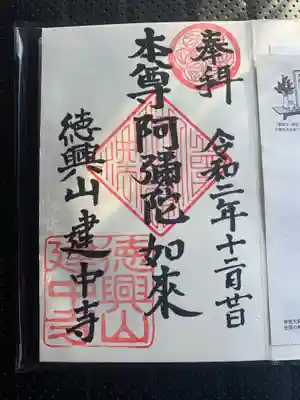 奉拝
令和二年十二月廿日
本尊阿彌陀如來
徳興山建中寺
徳興山
建中寺